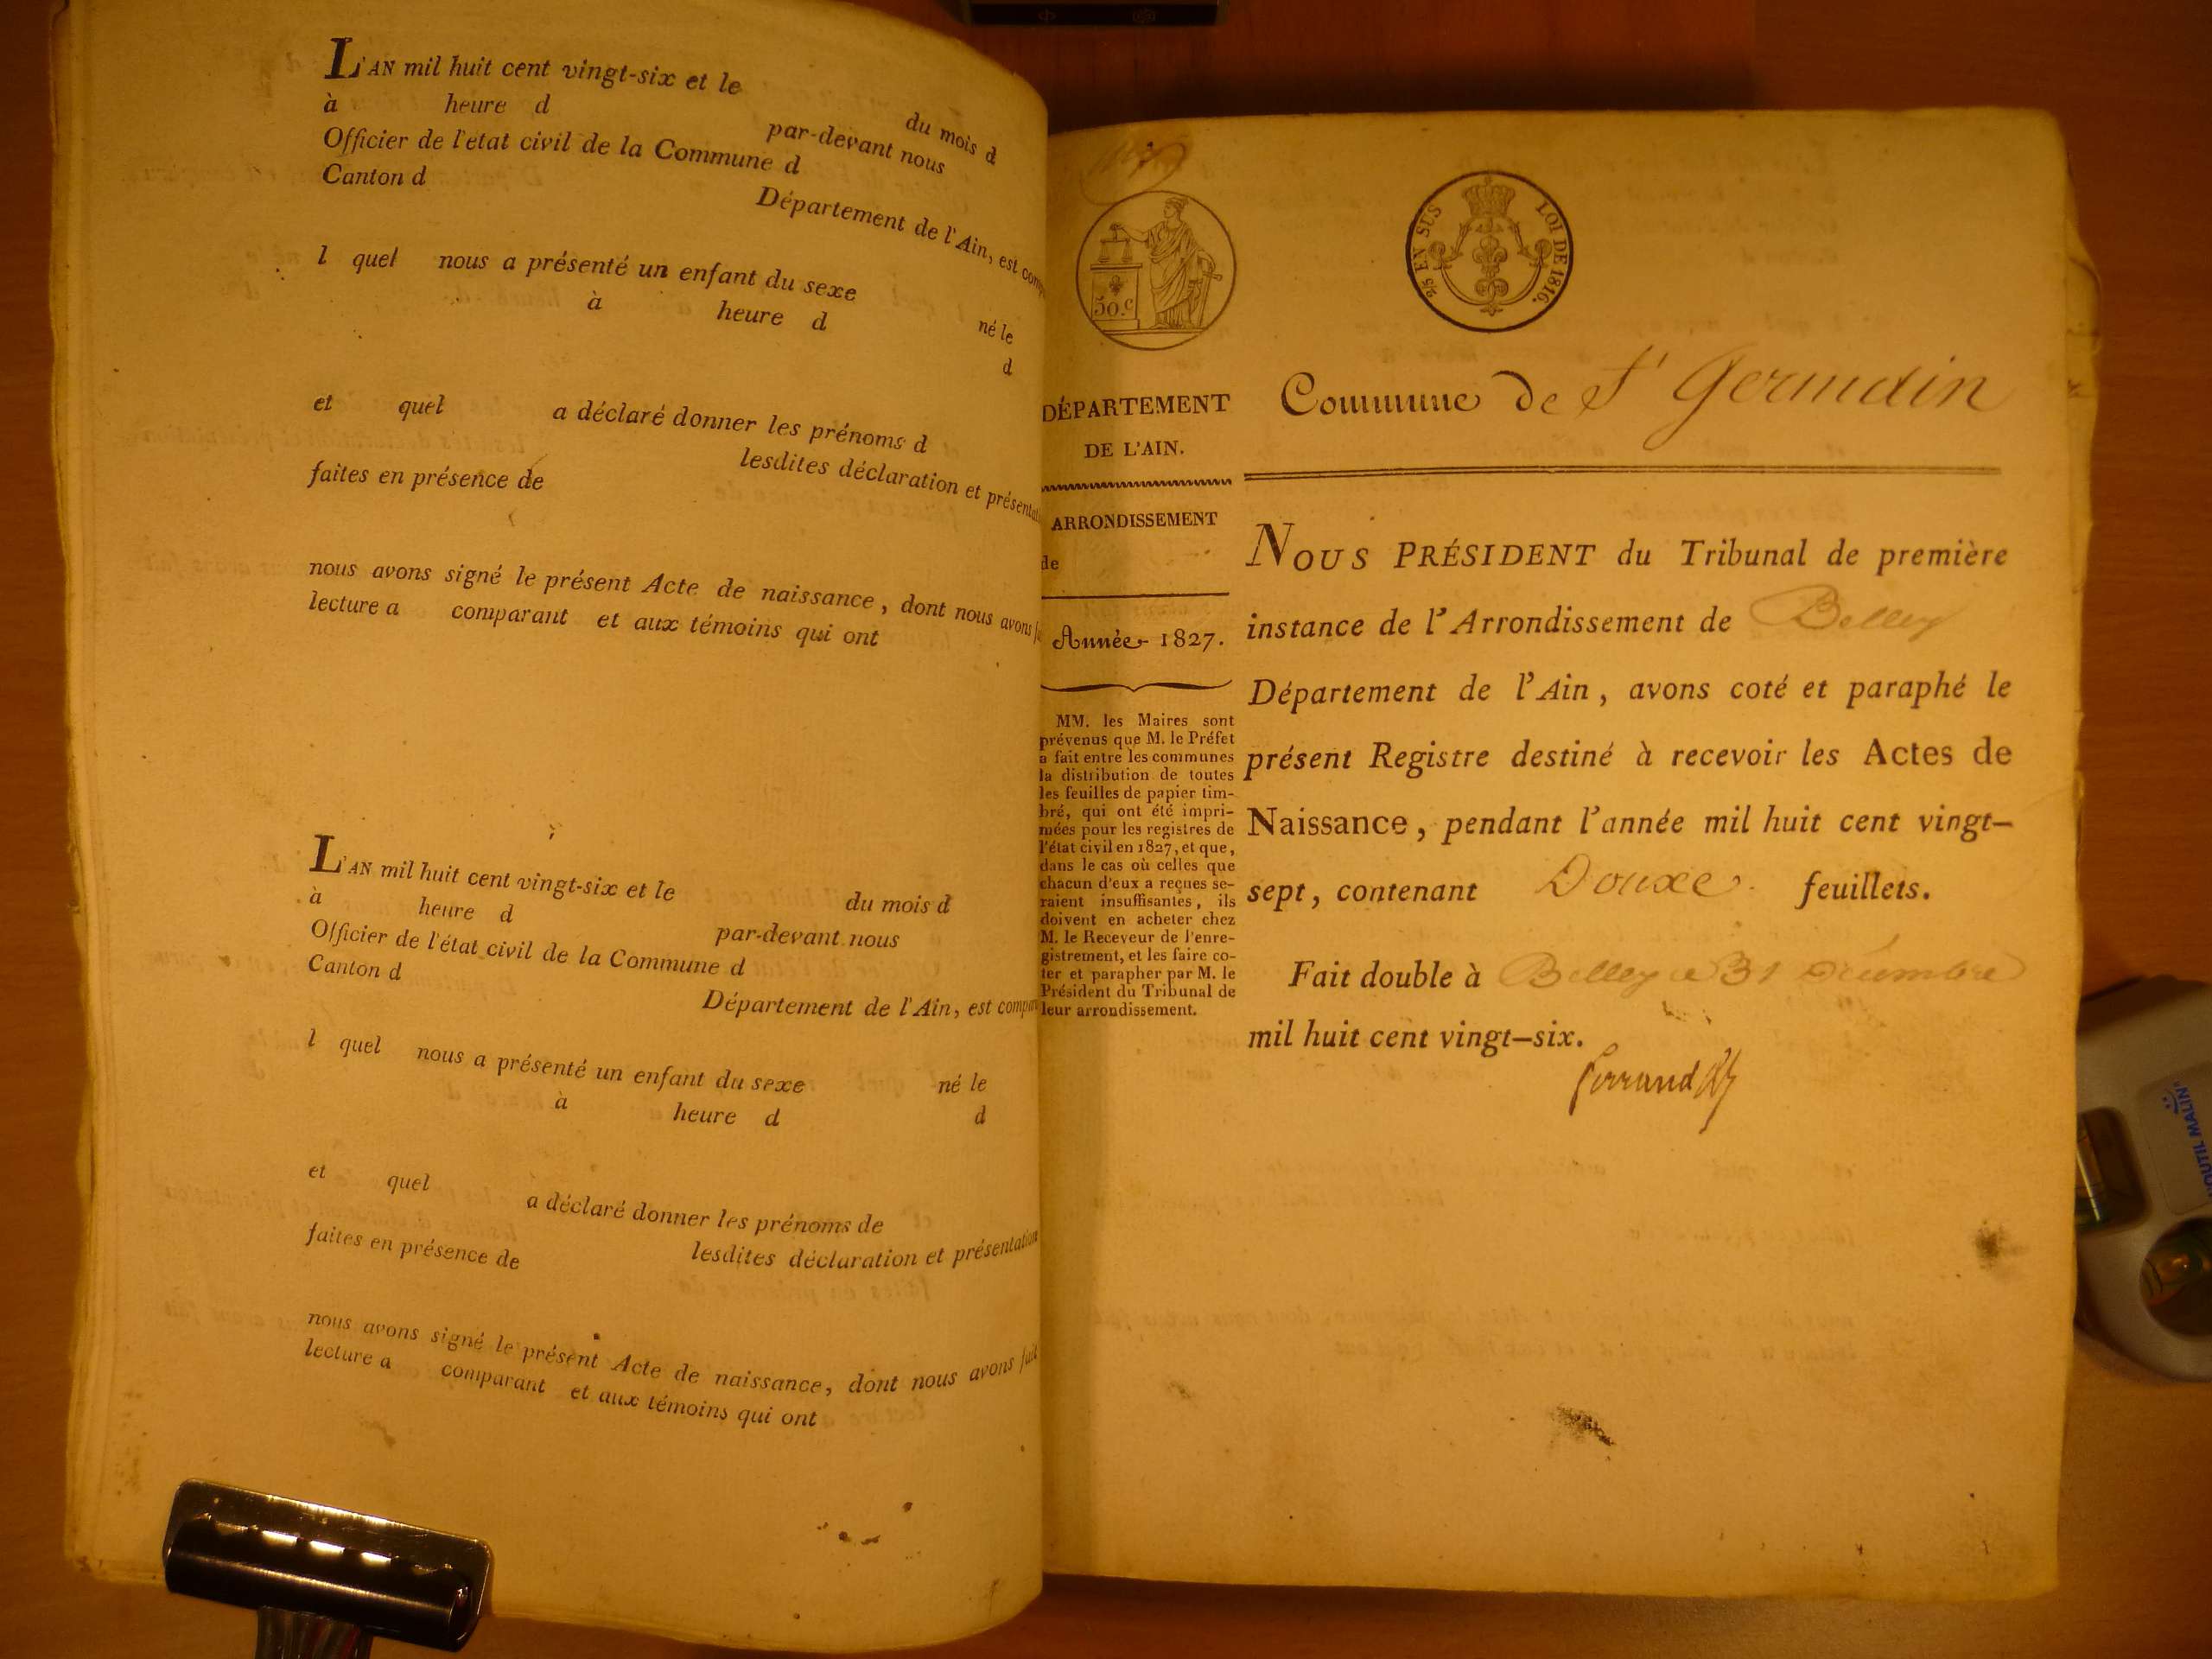 L'AN mil huit cent vingt-six et le du mois d
à heure d par-devant nous
Officier de l'état civil de la Commune d
Canton d Département de l'Ain, est comp
l quel nous a présenté un enfant du sexe né le
à heure d d
et quel a déclaré donner les prénoms d
lesdites déclaration et présentat
faites en présence de
nous avons signé le présent Acte de naissance, dont nous avons f
lecture a comparant et aux témoins qui ont
L'AN mil huit cent vingt-six et le du mois d
à heure d par-devant nous
Officier de l'état civil de la Commune d
Canton d Département de l'Ain, est compar
l quel nous a présenté un enfant du sexe né le
à heure d d
et quel a déclaré donner les prénoms de
lesdites déclaration et présentation
faites en présence de
nous avons signé le présent Acte de naissance, dont nous avons fait
lecture a comparant et aux témoins qui ont
50.c
25 EN SUS LOI DE 1816.
DÉPARTEMENT
DE L'AIN.
ARRONDISSEMENT
de
Année 1827.
MM. les Maires sont
prévenus que M. le Préfet
a fait entre les communes
la distribution de toutes
les feuilles de papier tim-
bré, qui ont été impri-
mées pour les registres de
l'état civil en 1827, et que,
dans le cas où celles que
chacun d'eux a reçues se-
raient insuffisantes, ils
doivent en acheter chez
M. le Receveur de l'enre-
gistrement, et les faire co-
ter et parapher par M. le
Président du Tribunal de
leur arrondissement.
Commune de St Germain
NOUS PRÉSIDENT du Tribunal de première
instance de l'Arrondissement de Belley
Département de l'Ain, avons coté et paraphé le
présent Registre destiné à recevoir les Actes de
Naissance, pendant l'année mil huit cent vingt-
sept, contenant Douze feuillets.
Fait double à Belley le 31 Décembre
mil huit cent vingt-six.
OUTIL MALIN